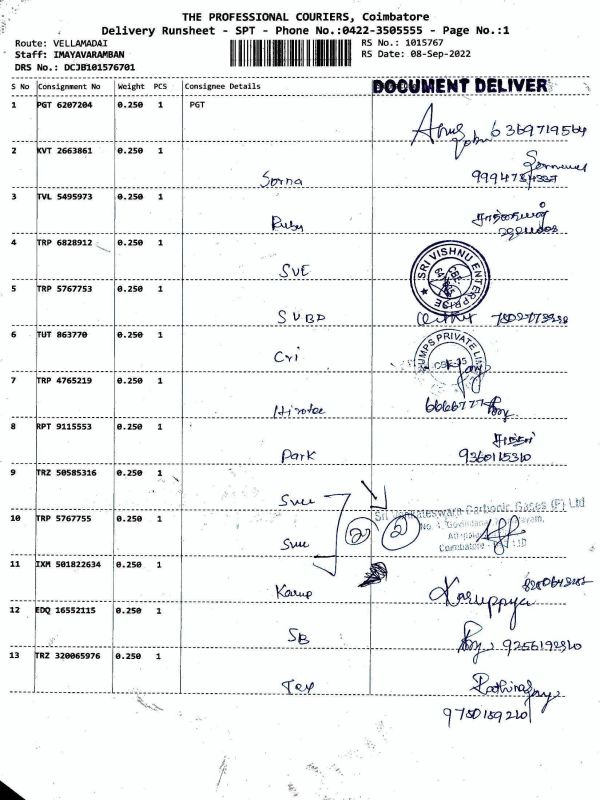 THE PROFESSIONAL COURIERS, Coimbatore
Delivery Runsheet - SPT - Phone No.:0422-3505555 - Page No.:1
Route: VELLAMADAI
RS No.: 1015767
Staff: IMAYAVARAMBAN
RS Date: 08-Sep-2022
DRS No.: DCJB101576701
S No Consignment No Weight PCS Consignee Details DOCUMENT DELIVER
1 PGT 6207204 0.250 1 PGT
6369719564
2 KVT 2663861 0.250 1
Sorna
3 TVL 5495973 0.250 1
Ruby
4 TRP 6828912 0.250 1
SVE
SRI VISHNU ENTERPRISE
5 TRP 5767753 0.250 1
SVBP
6 TUT 863770 0.250 1
Cri
UMPS PRIVATE LIM
7 TRP 4765219 0.250 1
8 RPT 9115553 0.250 1
Park 9360115310
9 TRZ 50585316 0.250 1
Svce
Sri Venkateswara Carbonic Gases (P) Ltd
10 TRP 5767755 0.250 1
2 2
No. 1, Govindana
Coimbatore
11 IXM 501822634 0.250 1
Karup Karuppya
12 EDQ 16552115 0.250 1
SB 9256192310
13 TRZ 320065976 0.250 1
Tex
9750159210